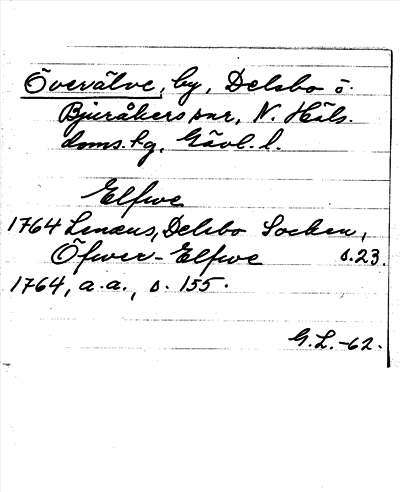 Övervälve, by, Delsbo o.
Bjuråkers snr, N. Häls.
doms.hg, Gävl. l.
Elfwe
1764 Lenæus, Delsbo Socken,
Öfwer-Elfwe s.23.
1764, a.a., s. 155.
G.L.-62.